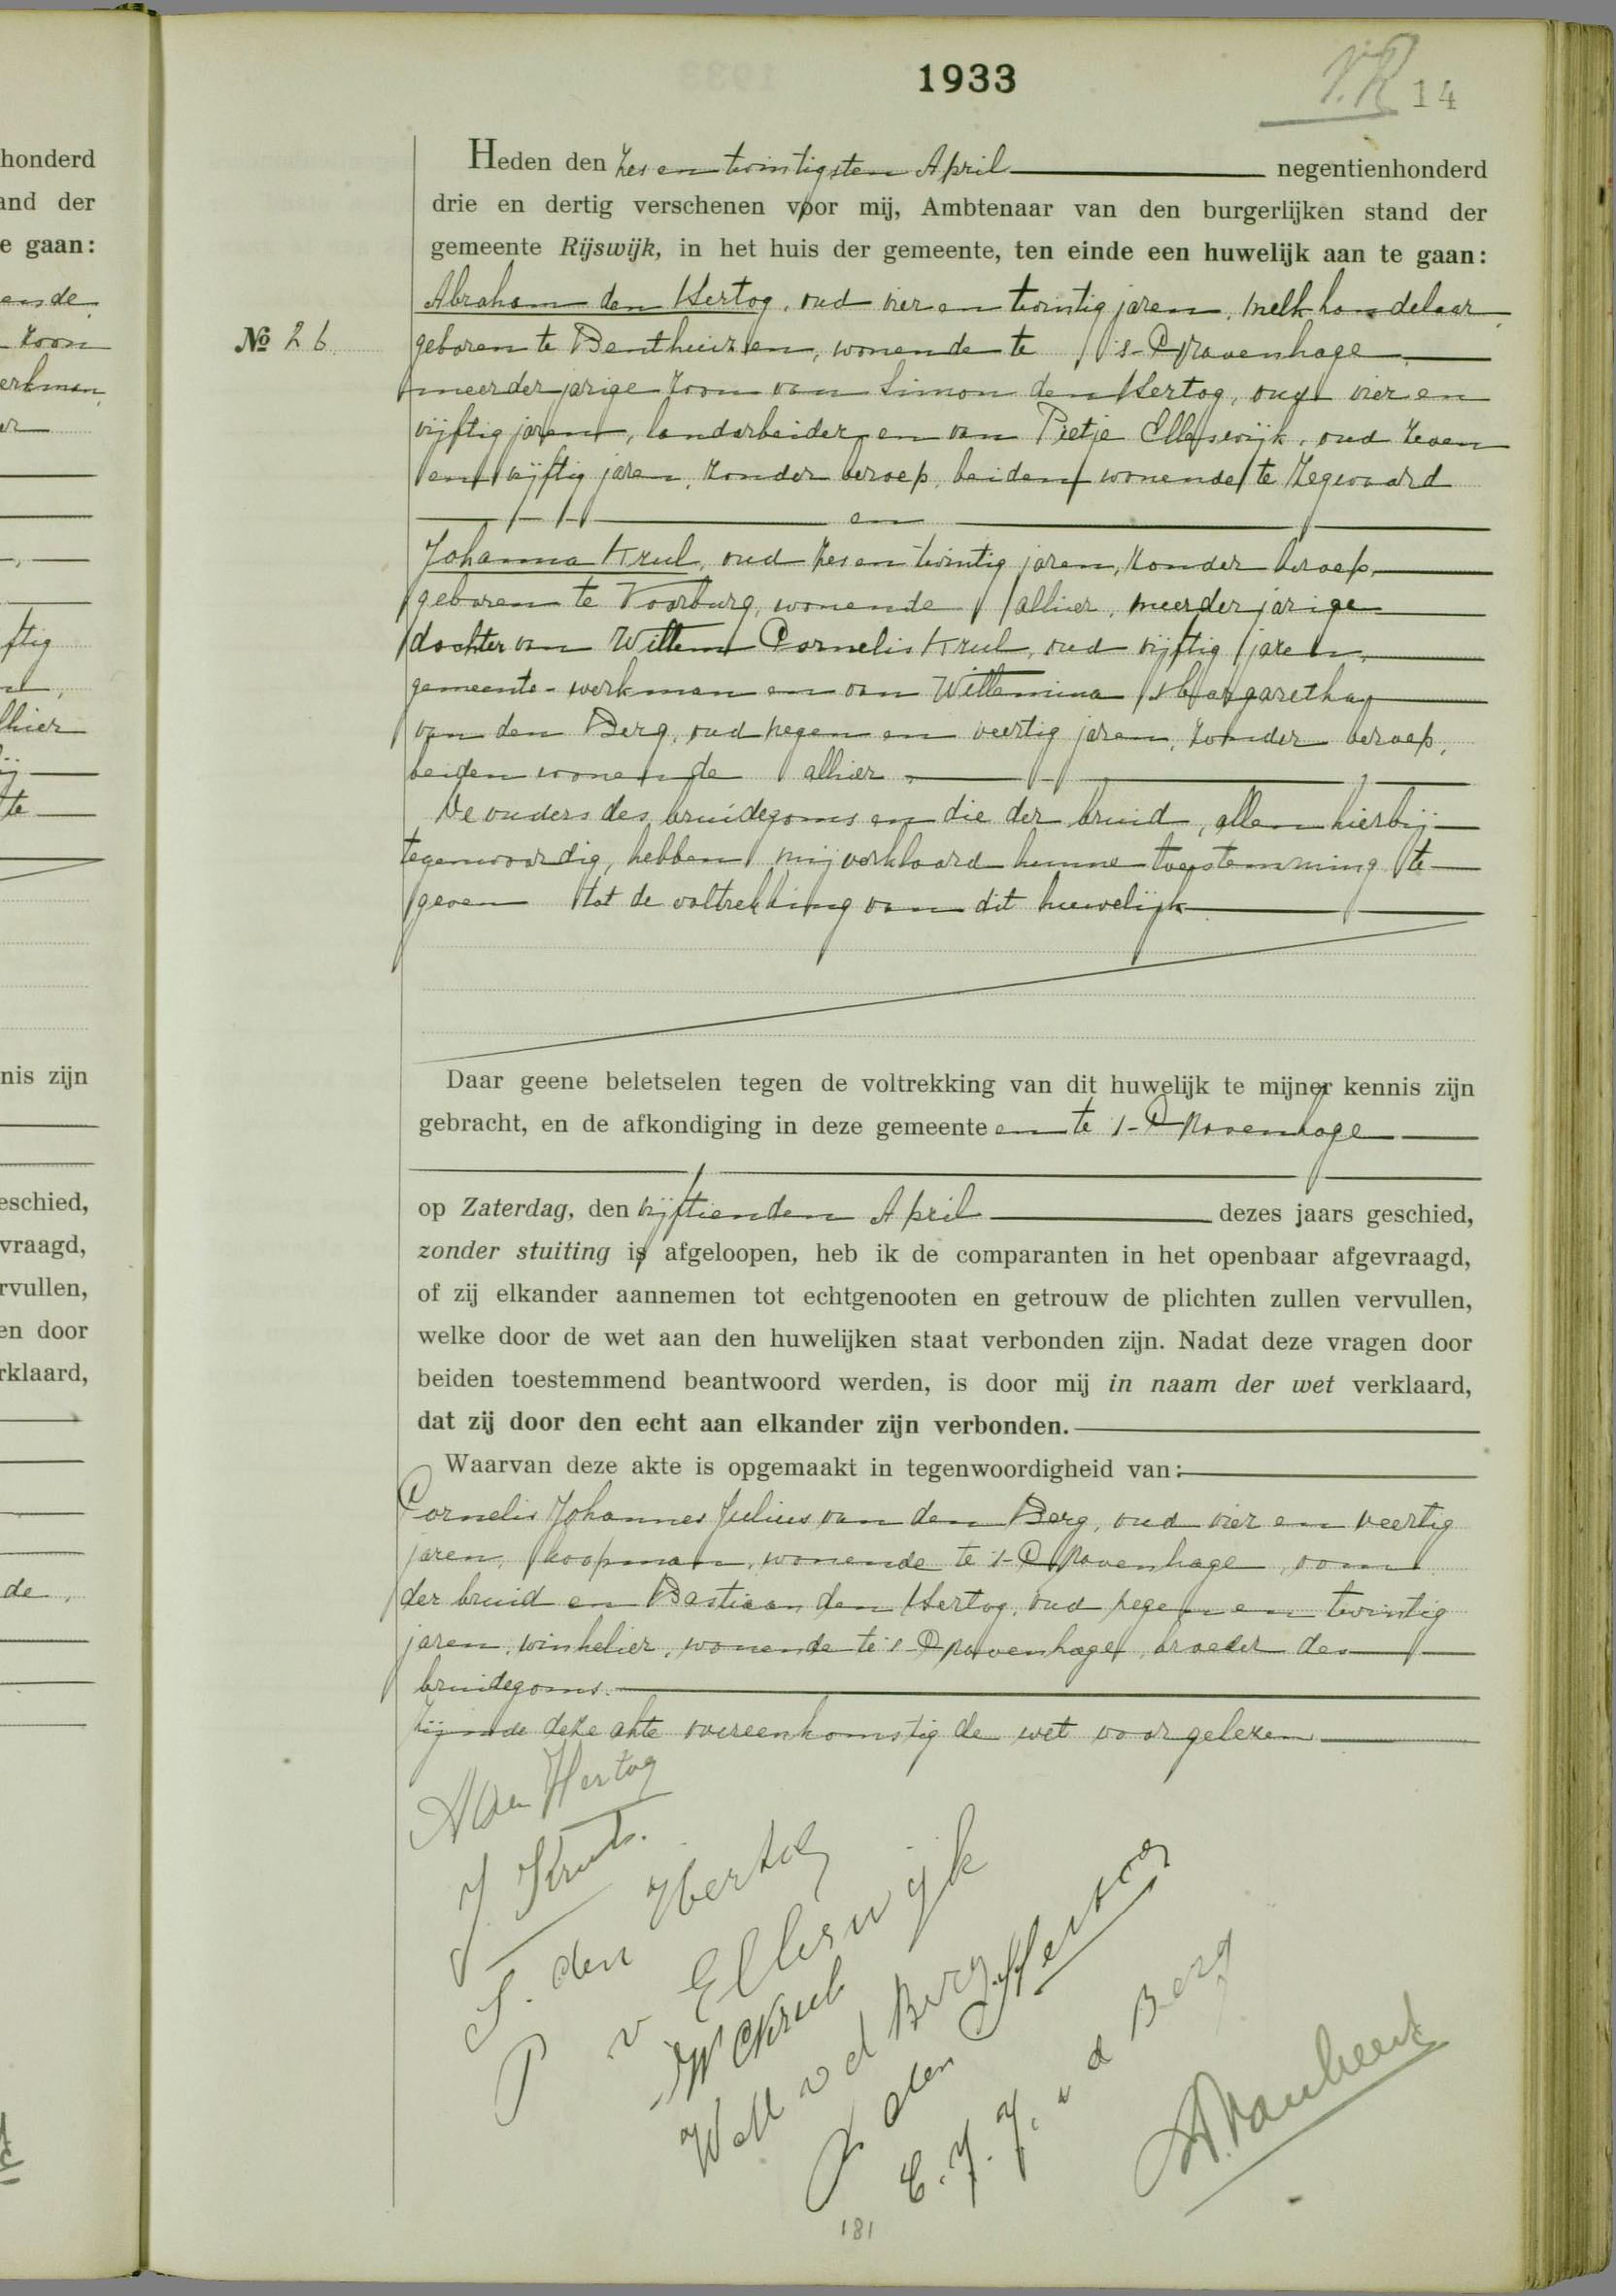 1933
V.R 14
honderd
and der
e gaan:
ende
zoon
erkman,
er
ftig
lhier
te
nis zijn
eschied,
vraagd,
rvullen,
en door
rklaard,
de,
Heden den zes en twintigsten April negentienhonderd
drie en dertig verschenen voor mij, Ambtenaar van den burgerlijken stand der
gemeente Rijswijk, in het huis der gemeente, ten einde een huwelijk aan te gaan:
Abraham den Hertog, oud vier en twintig jaren, melkhandelaar,
№ 26
geboren te Benthuizen, wonende te 's-Gravenhage,
meerderjarige zoon van Simon den Hertog, oud vier en
vijftig jaren, landarbeider en van Pietje Ellerswijk, oud zeven
en vijftig jaren, zonder beroep, beiden wonende te Zegwaard
en
Johanna Krul, oud zes en twintig jaren, zonder beroep,
geboren te Voorburg, wonende alhier, meerderjarige
dochter van Willem Cornelis Krul, oud vijftig jaren,
gemeente-werkman en van Willemina Margaretha
van den Berg, oud negen en veertig jaren, zonder beroep,
beiden wonende alhier.
De ouders des bruidegoms en die der bruid, allen hierbij
tegenwoordig, hebben mij verklaard hunne toestemming te
geven tot de voltrekking van dit huwelijk
Daar geene beletselen tegen de voltrekking van dit huwelijk te mijner kennis zijn
gebracht, en de afkondiging in deze gemeente en te 's-Gravenhage
op Zaterdag, den vijftienden April dezes jaars geschied,
zonder stuiting is afgeloopen, heb ik de comparanten in het openbaar afgevraagd,
of zij elkander aannemen tot echtgenooten en getrouw de plichten zullen vervullen,
welke door de wet aan den huwelijken staat verbonden zijn. Nadat deze vragen door
beiden toestemmend beantwoord werden, is door mij in naam der wet verklaard,
dat zij door den echt aan elkander zijn verbonden.
Waarvan deze akte is opgemaakt in tegenwoordigheid van:
Cornelis Johannes Julius van den Berg, oud vier en veertig
jaren, koopman, wonende te 's-Gravenhage, oom
der bruid en Bastiaan den Hertog, oud negen en twintig
jaren, winkelier, wonende te 's-Gravenhage, broeder des
bruidegoms.
Zijnde deze akte overeenkomstig de wet voorgelezen
A den Hertog
J Krul.
S. den Hertog
P v Ellerswijk
W C Krul
W M v d Berg
den Hertog
C. J. J. v d Berg
181